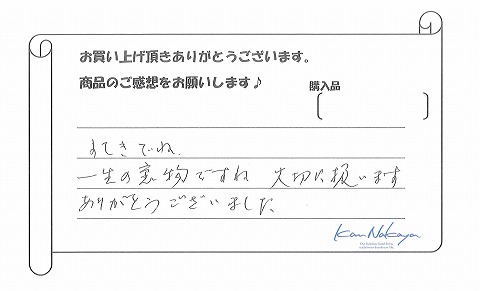 お買い上げ頂きありがとうございます。
商品のご感想をお願いします♪
購入品
すてきでね。
一生の宝物ですね 大切に扱います
ありがとうございました
Kan Nakaya